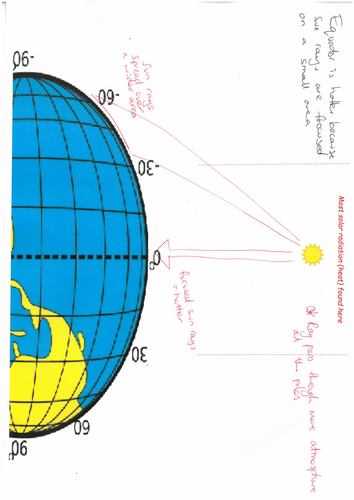 Equator is hotter because
sun rays are focused
on a small area
Most solar radiation (heat) found here
Ray pass though more atmosphere
at the poles
Sun rays
spread over
a wider area
focused sun rays
= hotter
-90
-60
-30
0°
30
60
90